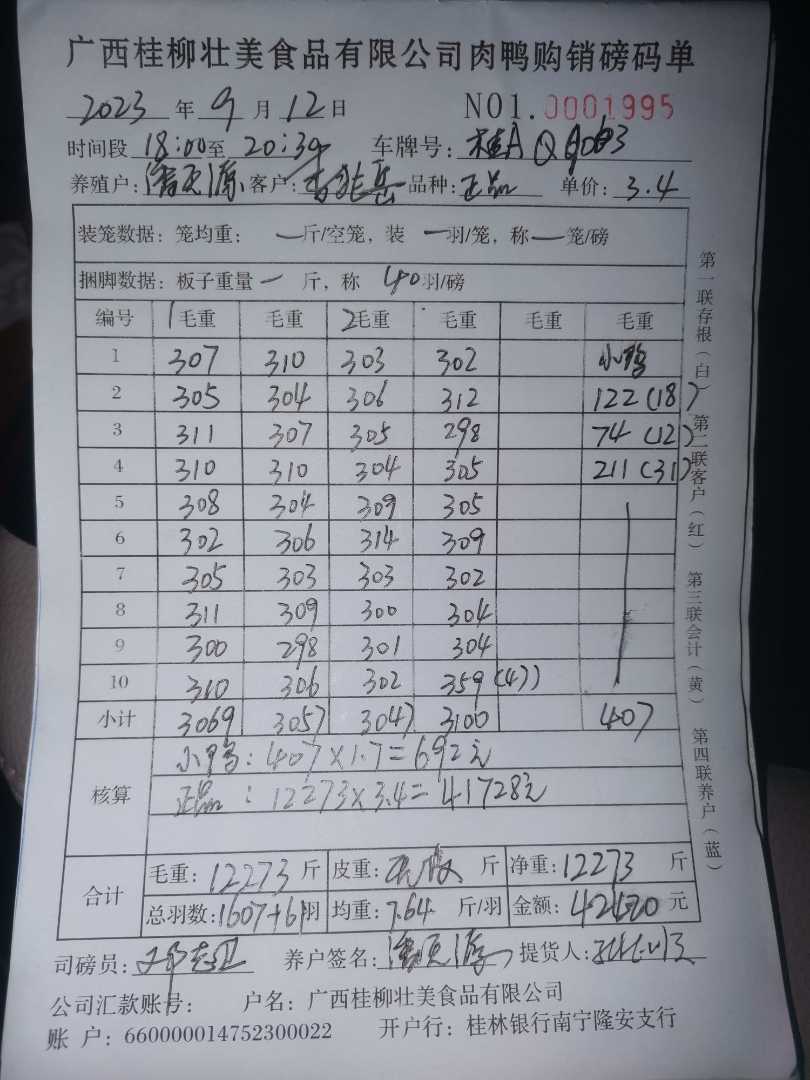 广西桂柳壮美食品有限公司肉鸭购销磅码单
2023 年 9 月 12 日 NO1.0001995
时间段 18:00至 20:39 车牌号: 桂A Q9063
养殖户: 客户: 品种: 正品 单价: 3.4
装笼数据: 笼均重: 一斤/空笼, 装 一羽/笼, 称一笼/磅
捆脚数据: 板子重量 一 斤, 称 40羽/磅
编号 1毛重 毛重 2毛重 毛重 毛重 毛重
1 307 310 303 302 小鸭
2 305 304 306 312 122(18)
3 311 307 305 298 74(12)
4 310 310 304 305 211(31)
5 308 304 309 305
6 302 306 314 309
7 305 303 303 302
8 311 309 300 304
9 300 298 301 304
10 310 306 302 359(47)
小计 3069 3057 3047 3100 407
核算
小鸭: 407×1.7=692元
正品: 12273×3.4=41728元
合计
毛重: 12273 斤 皮重: 斤 净重: 12273 斤
总羽数: 1607+61羽 均重: 7.64 斤/羽 金额: 42420 元
司磅员: 养户签名: 提货人:
公司汇款账号: 户名: 广西桂柳壮美食品有限公司
账 户: 660000014752300022 开户行: 桂林银行南宁隆安支行
第一联存根(白) 第二联客户(红) 第三联会计(黄) 第四联养户(蓝)